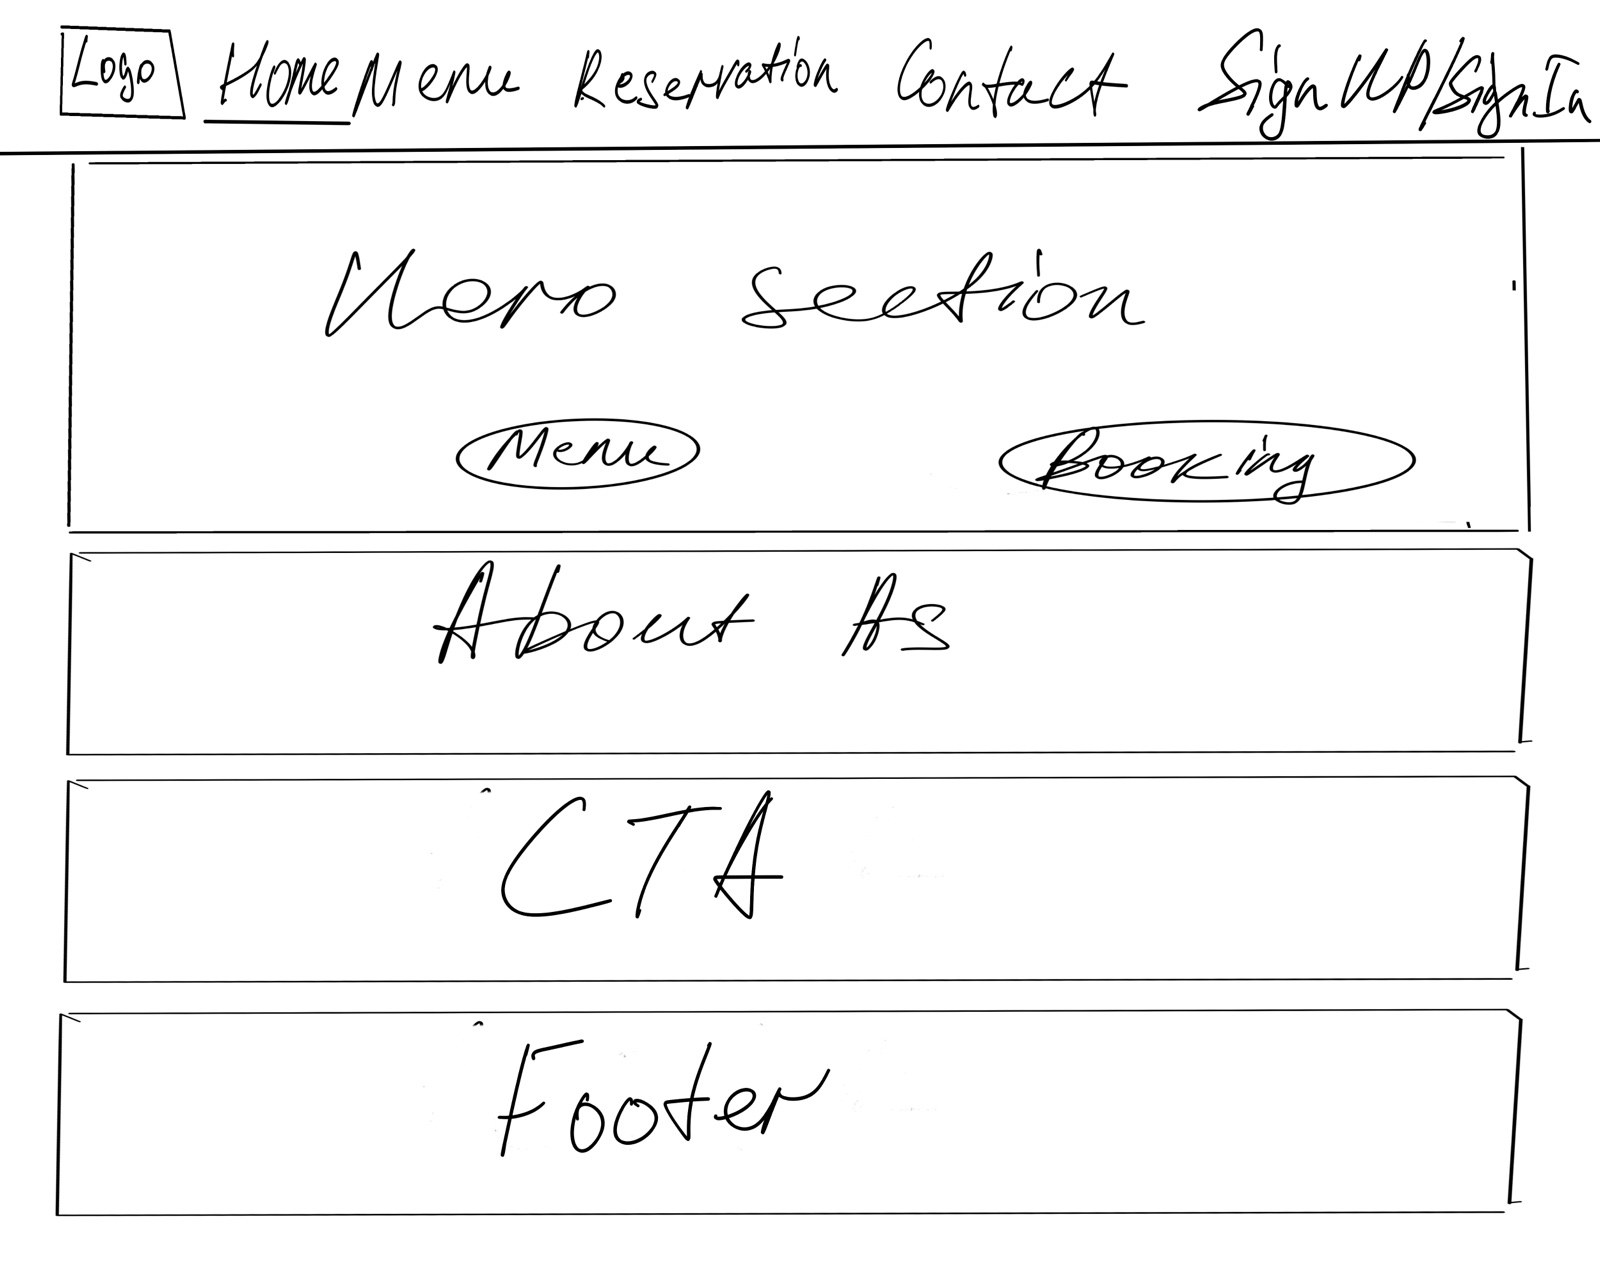 Logo Home Menu Reservation Contact Sign UP/Sign In
Hero section
Menu Booking
About As
CTA
Footer